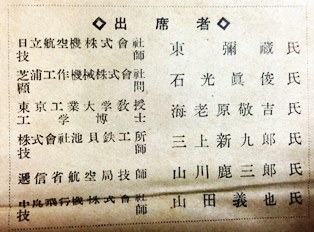 ◇出席者◇
日立航空機株式會社
技師 東彌藏氏
芝浦工作機械株式會社
顧問 石光眞俊氏
東京工業大学教授
工学博士 海老原敬吉氏
株式會社池貝鉄工所
技師 三上新九郎氏
遞信省航空局技師 山川鹿三郎氏
中島飛行機株式會社
技師 山田義也氏